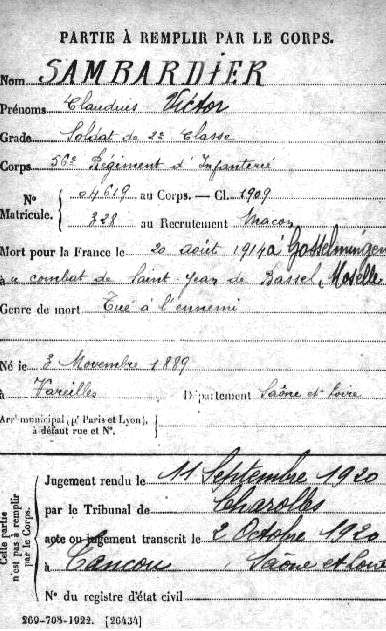 PARTIE À REMPLIR PAR LE CORPS.
Nom SAMBARDIER
Prénoms Claudius Victor
Grade Soldat de 2e Classe
Corps 56e Régiment d'Infanterie
N° Matricule. { 04619 au Corps. — Cl. 1909
328 au Recrutement Macon
Mort pour la France le 20 août 1914 à Gosselmingen
à "combat de Saint-Jean de Bassel, Moselle
Genre de mort Tué à l'ennemi
Né le 3 Novembre 1889
à Vareilles Département Saône et Loire
Arrt municipal (pr Paris et Lyon), à défaut rue et N°.
Cette partie n'est pas à remplir par le Corps.
Jugement rendu le 11 Septembre 1920
par le Tribunal de Charolles
acte ou jugement transcrit le 2 Octobre 1920
à Saône et Loire
N° du registre d'état civil
269-708-1922. [26434]